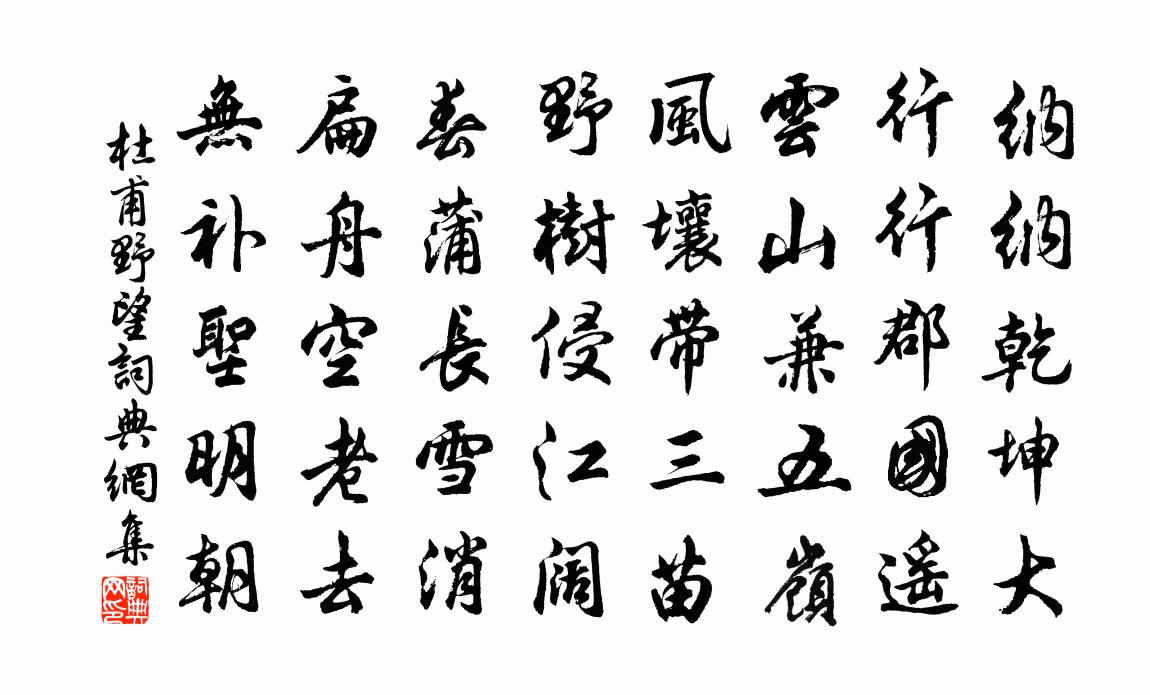 納納乾坤大
行行郡國遥
雲山兼五嶺
風壤帶三苗
野樹侵江闊
春蒲長雪消
扁舟空老去
無补聖明朝
杜甫野望詞典網集
詞典網印